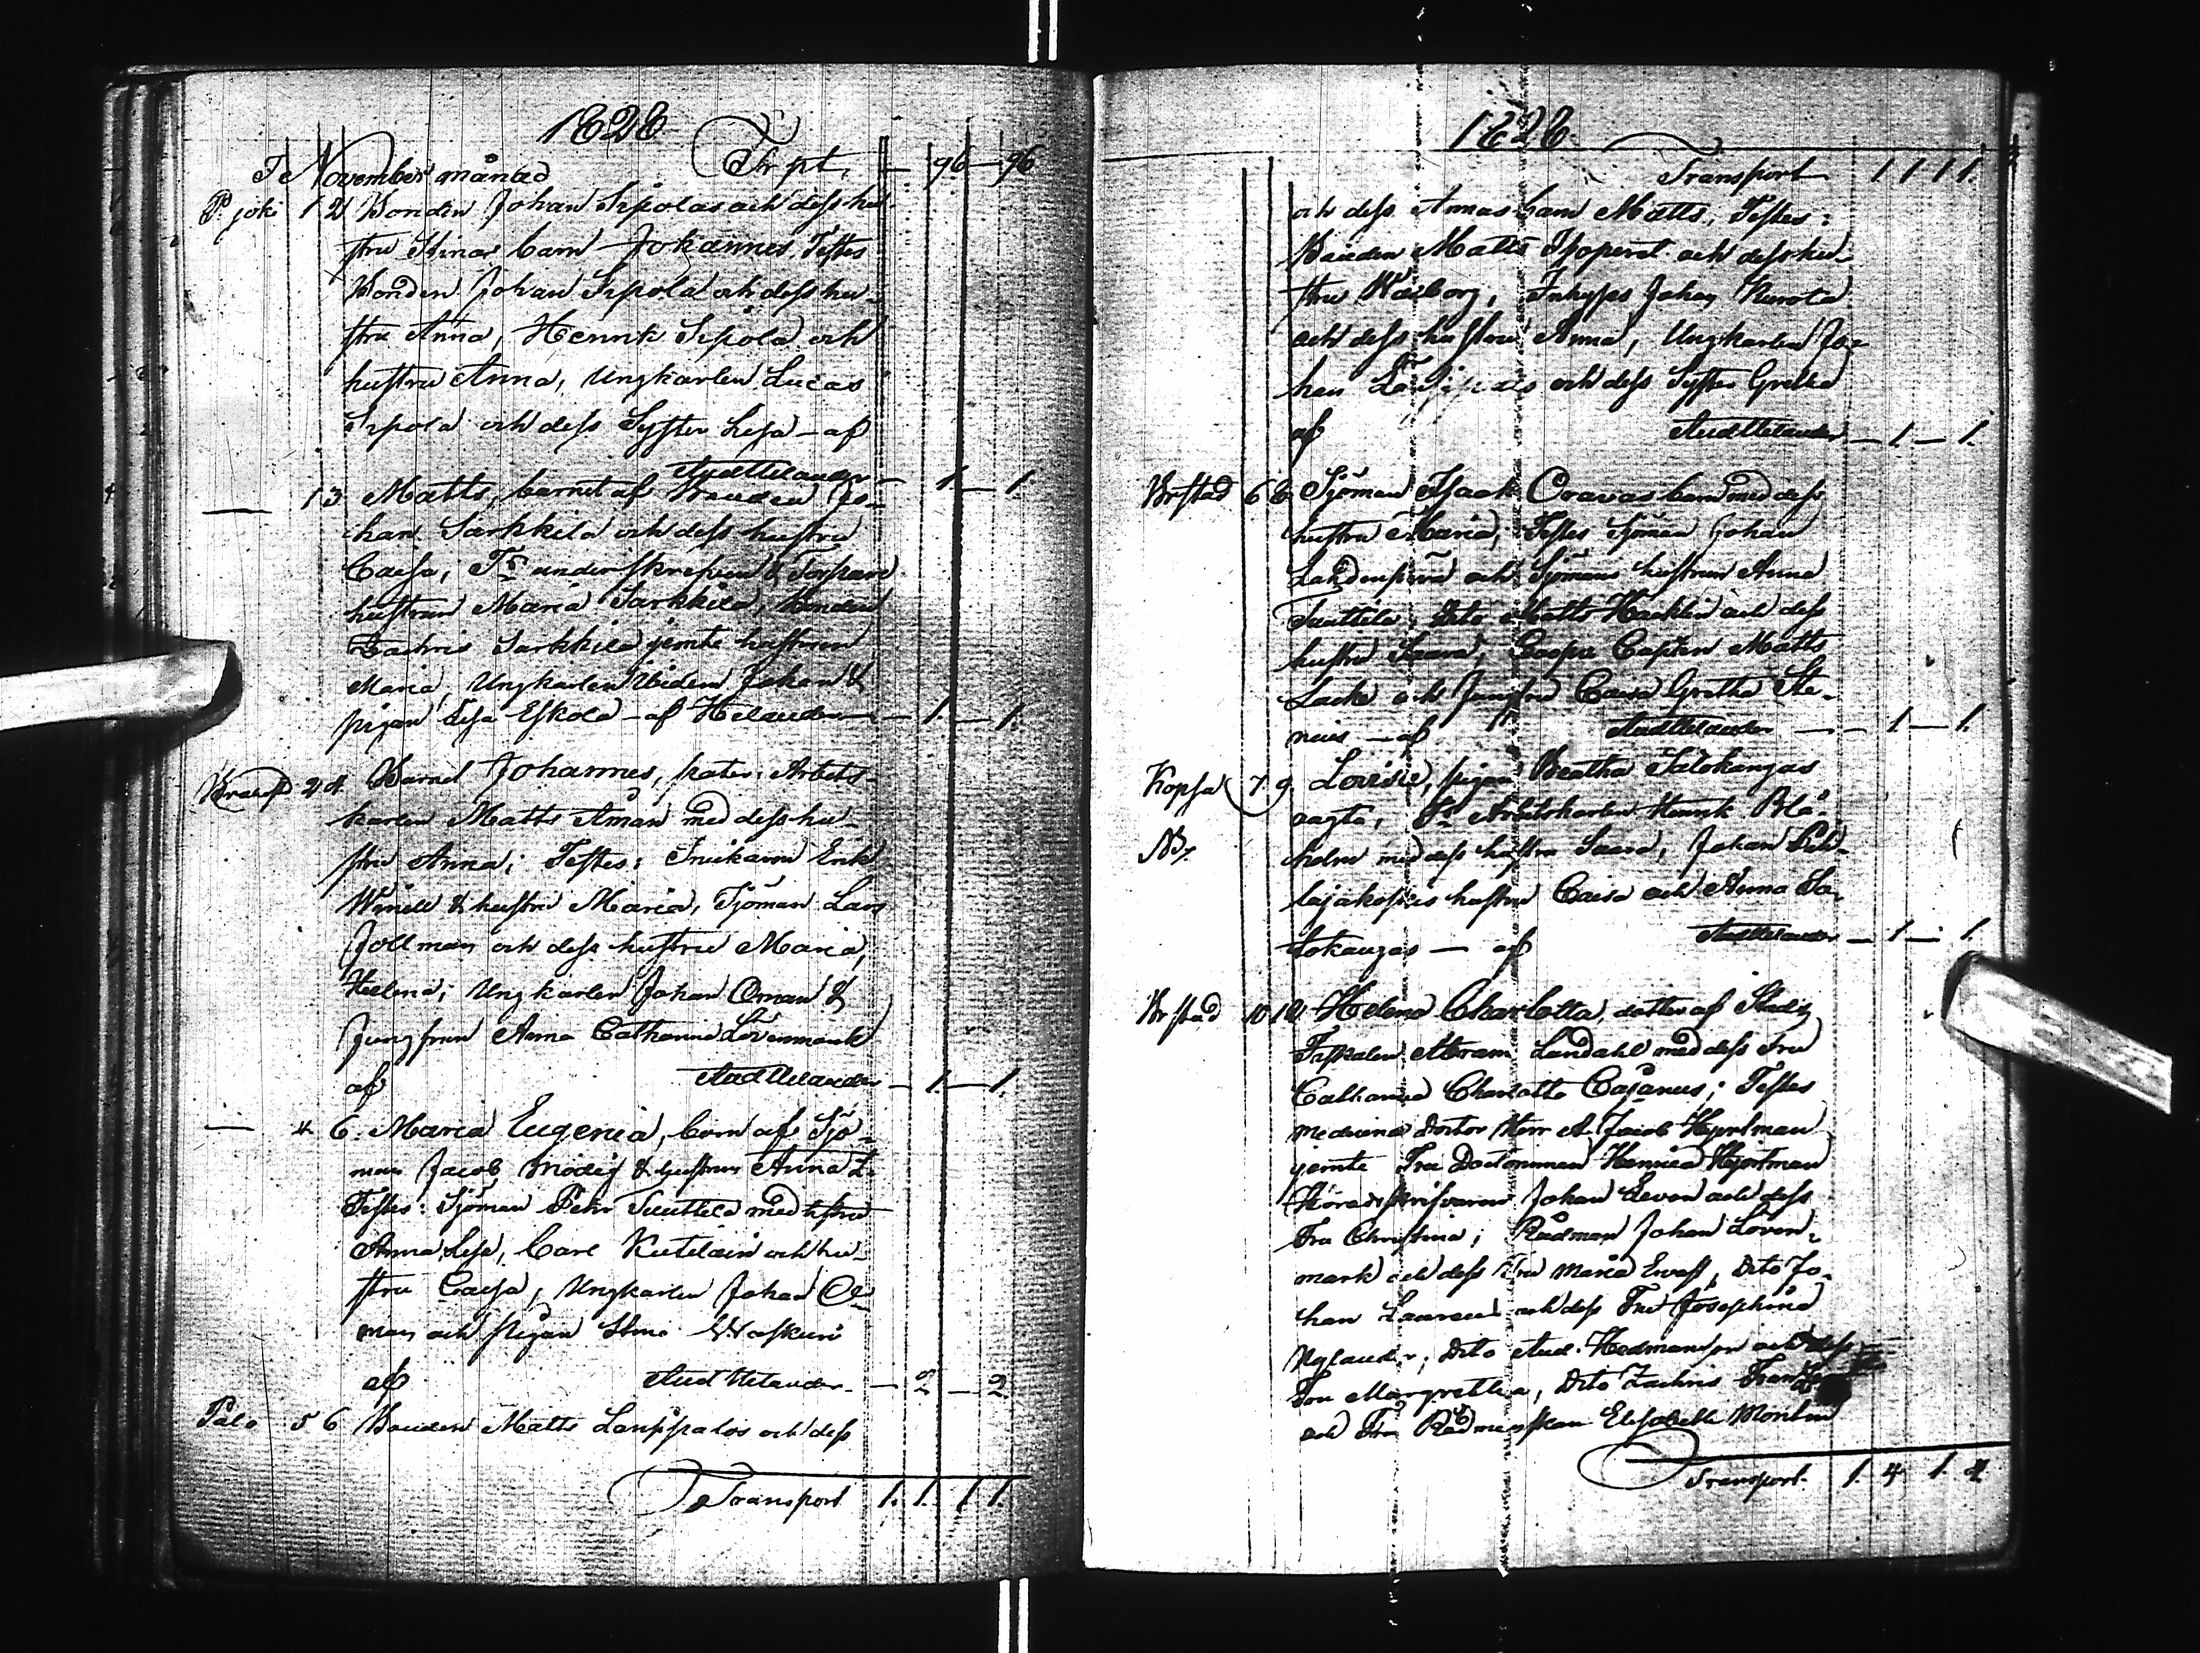 1828
I November månad Trpt. — 96 — 96
P. joki 1 2 Bonden Johan Sipolas och dess hu-
stru Stinas barn Johannes. Testes
Bonden Johan Sipola och dess hu-
stru Anna, Henrik Sipola och
hustru Anna, Ungkarlen Lucas
Sipola och dess Syster Lisa — af
And Helander — 1 — 1
— 1 3 Matts, barnet af Bonden Jo-
han Sarkkila och dess hustru
Caisa, Ts underskrefven & Torpare
hustrun Maria Sarkkila, Bonden
Zachris Sarkkila jemte hustrun
Maria, Ungkarlen Johan &
pigan Lisa Eskola — af Helander — 1 — 1
Brahest 2 4 Barnet Johannes, pater: Arbets-
karlen Matts Åman med dess hu-
stru Anna; Testes: Snickaren Erik
Winell & hustru Maria, Sjöman Lars
Jollman och dess hustru Maria,
Helena; Ungkarlen Johan Öman &
Jungfrun Anna Catharina Lövenmark
af And Helander — 1 — 1.
— 4 6. Maria Eugenia, barn af Sjö-
man Jacob Modig & hustrun Anna L.
Testes: Sjöman Pehr Tuuttila med hstru
Anna Lisa, Carl Kutilain och hu-
stru Caisa, Ungkarlen Johan Ö-
man och pigan Stina Waskuri
af And Helander. — 2 — 2
Palo 5 6 Bonden Matts Lauppalos och dess
Transport 1. 1. 1. 1.
1828
Transport 1 1 1 1.
och dess Annas barn Matts, Testes:
Bonden Matts och dess hu-
stru Walborg, Inhyses Johan Kurola
och dess hustru Anna, Ungkarlen Jo-
han och dess Syster Gretha
af And Helander — 1 — 1.
Brstad 6 8 Sjöman Isack Oravas barn med dess
hustru Maria; Testes Sjöman Johan
Lahdenperä och Sjömans hustrun Anna
Tuuttila, Dito Matts och dess
hustru Saara; Coopv Capten Matts
Lacke och Jungfru Caisa Gretha Ste-
nius — af And Helander — 1 — 1.
Kopsa 7. 9. Lovisa, pigan Beatha Salokangas
oägta, Ts Arbetskarlen Henrik Blå-
NB. holm med dess hustru Saara, Johan
hustru Caisa och Anna Sa-
lokangas — af And Helander — 1 — 1.
Brstad 10 12 Helena Charlotta, dotter af Stads
Fiskalen Abram Landahl med dess Fru
Catharina Charlotta Cajanus; Testes
Medicine Doctor Herr A. Jacob Hjertman
jemte Fru Doctorinnan Henrica Hjertman
Häradsskrifvaren Johan och dess
Fru Christina; Rådman Johan Loven-
mark och dess Fru Maria, Dito Jo-
han och dess Fru Josephina
Uglander; Dito And. Hedmansson och dess
Fru Margretha, Dito Zachris
och Fru Rådmanskan Elisabeth Montin
Transport. 1 4 1. 4